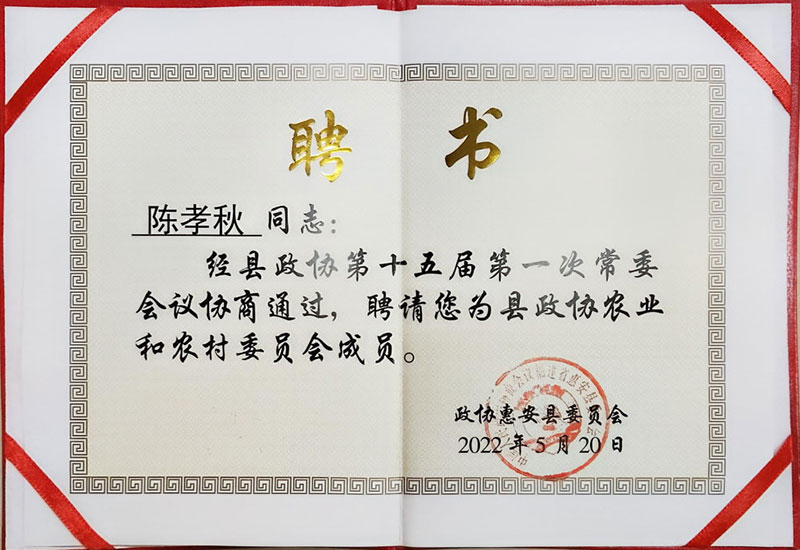 聘 书
陈孝秋 同志：
经县政协第十五届第一次常委
会议协商通过，聘请您为县政协农业
和农村委员会成员。
政协惠安县委员会
2022年5月20日